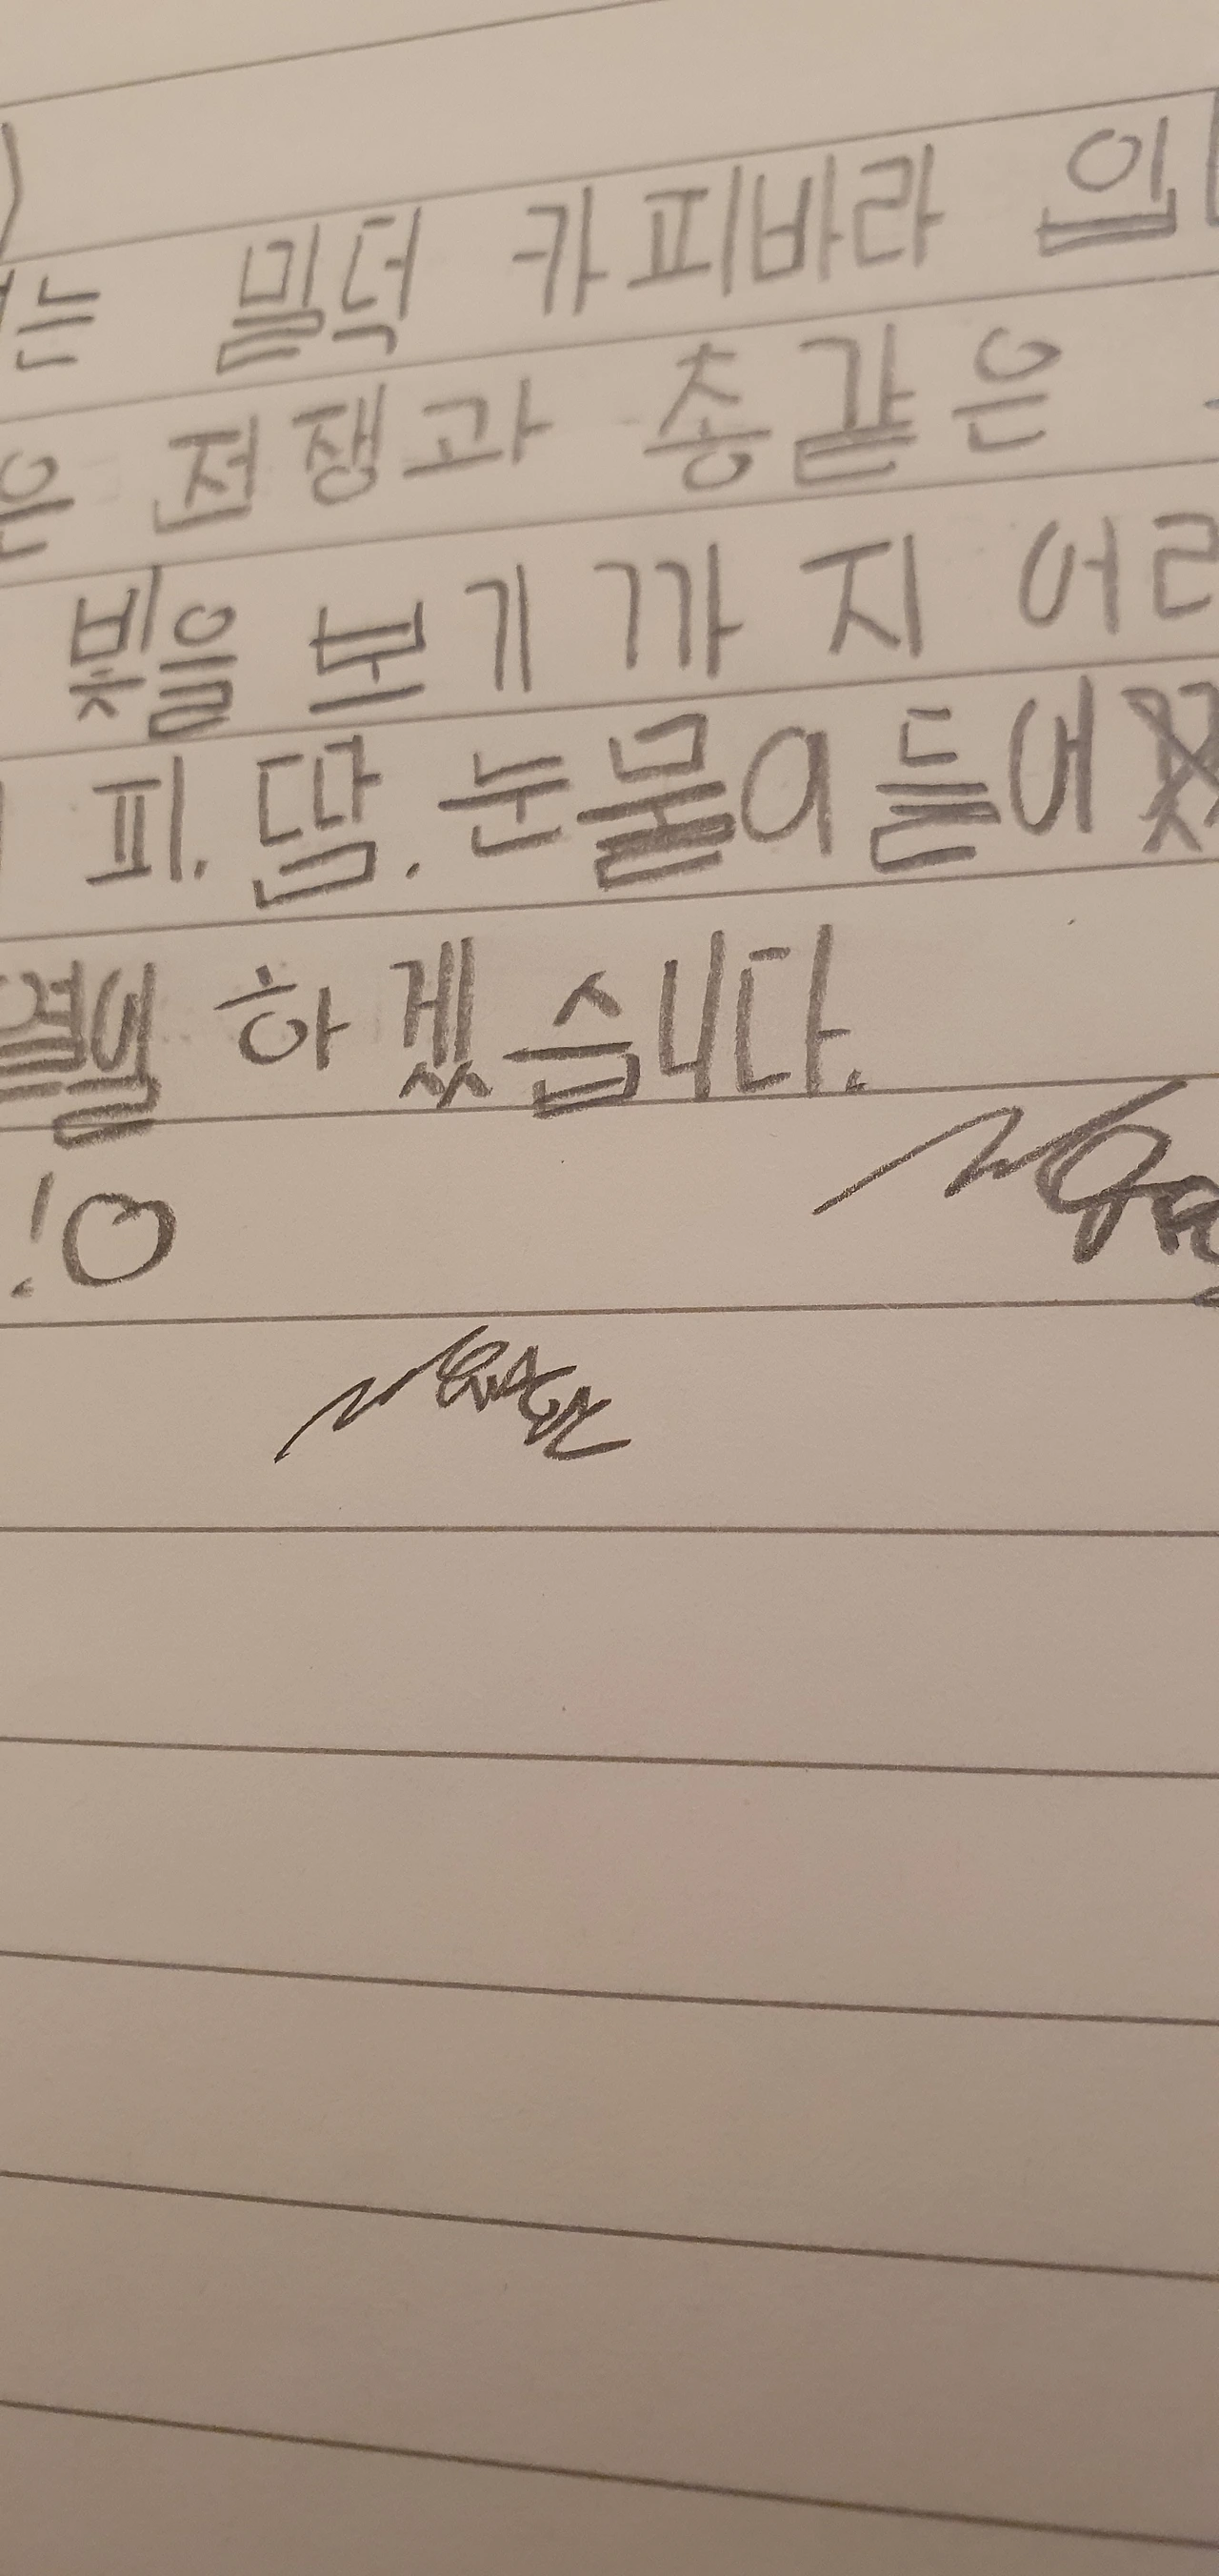 는 밀덕 카피바라 입
은 전쟁과 총같은
빛을 보기까지 어려
피. 땀. 눈물이 들어
하겠습니다.
!○